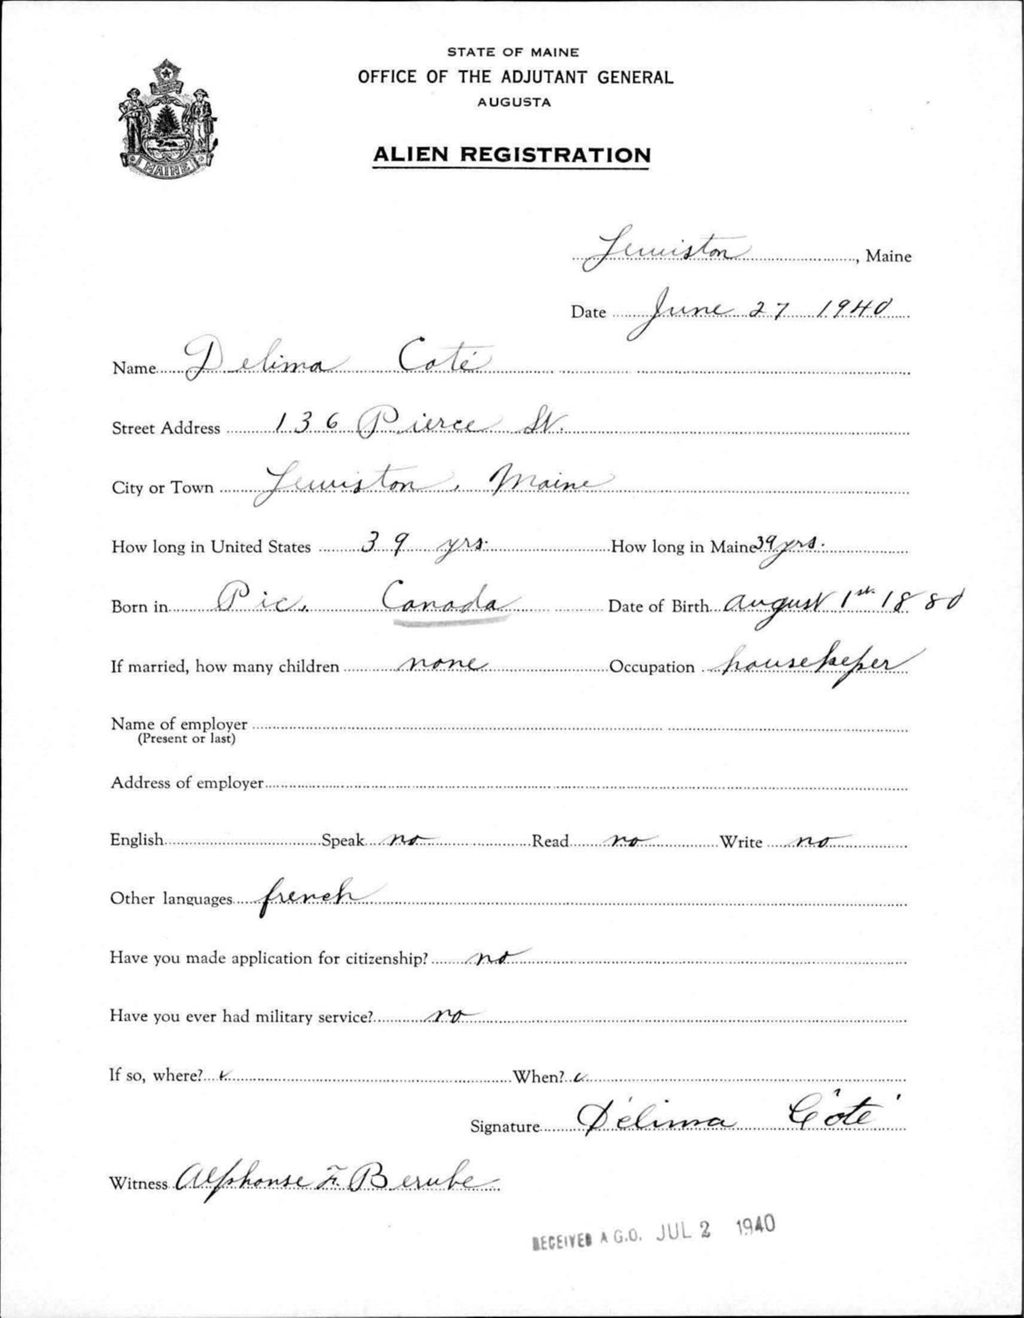 STATE OF MAINE
OFFICE OF THE ADJUTANT GENERAL
AUGUSTA
ALIEN REGISTRATION
MAINE
Lewiston, Maine
Date June 27 1940
Name Delima Coté
Street Address 136 Pierce St.
City or Town Lewiston, Maine
How long in United States 39 yrs. How long in Maine 39 yrs.
Born in Pic, Canada Date of Birth August 1st 1880
If married, how many children none Occupation housekeper
Name of employer
(Present or last)
Address of employer
English Speak no Read no Write no
Other languages french
Have you made application for citizenship? no
Have you ever had military service? no
If so, where? When?
Signature Délima Côté
Witness Alphonse F. Berube
RECEIVED A.G.O. JUL 2 1940